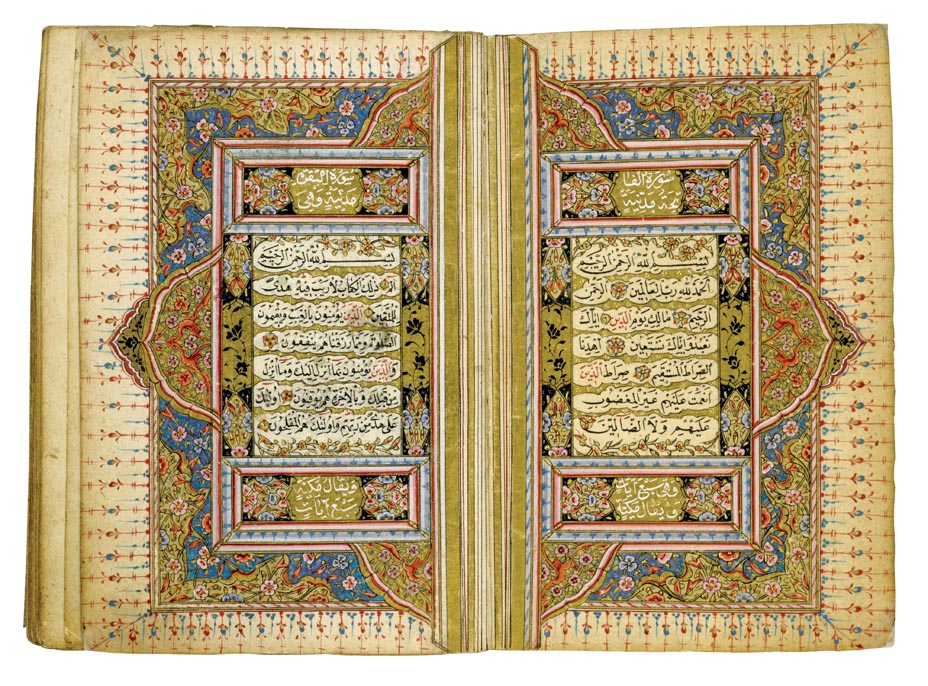 سورة الفا
تحة مدنية
بسم الله الرحمن الرحيم
الحمد لله رب العالمين الرحمن
الرحيم مالك يوم الدين اياك
نعبد واياك نستعين اهدنا
الصراط المستقيم صراط الذين
انعمت عليهم غير المغضوب
عليهم ولا الضالين
وهي سبع آيات
ويقال مكية
سورة البقرة
مدنية وهي
بسم الله الرحمن الرحيم
الم ذلك الكتاب لا ريب فيه هدى
للمتقين الذين يؤمنون بالغيب ويقيمون
الصلوة ومما رزقناهم ينفقون
والذين يؤمنون بما انزل اليك وما انزل
من قبلك وبالآخرة هم يوقنون اولئك
على هدى من ربهم واولئك هم المفلحون
ويقال مكية
سبع آيات